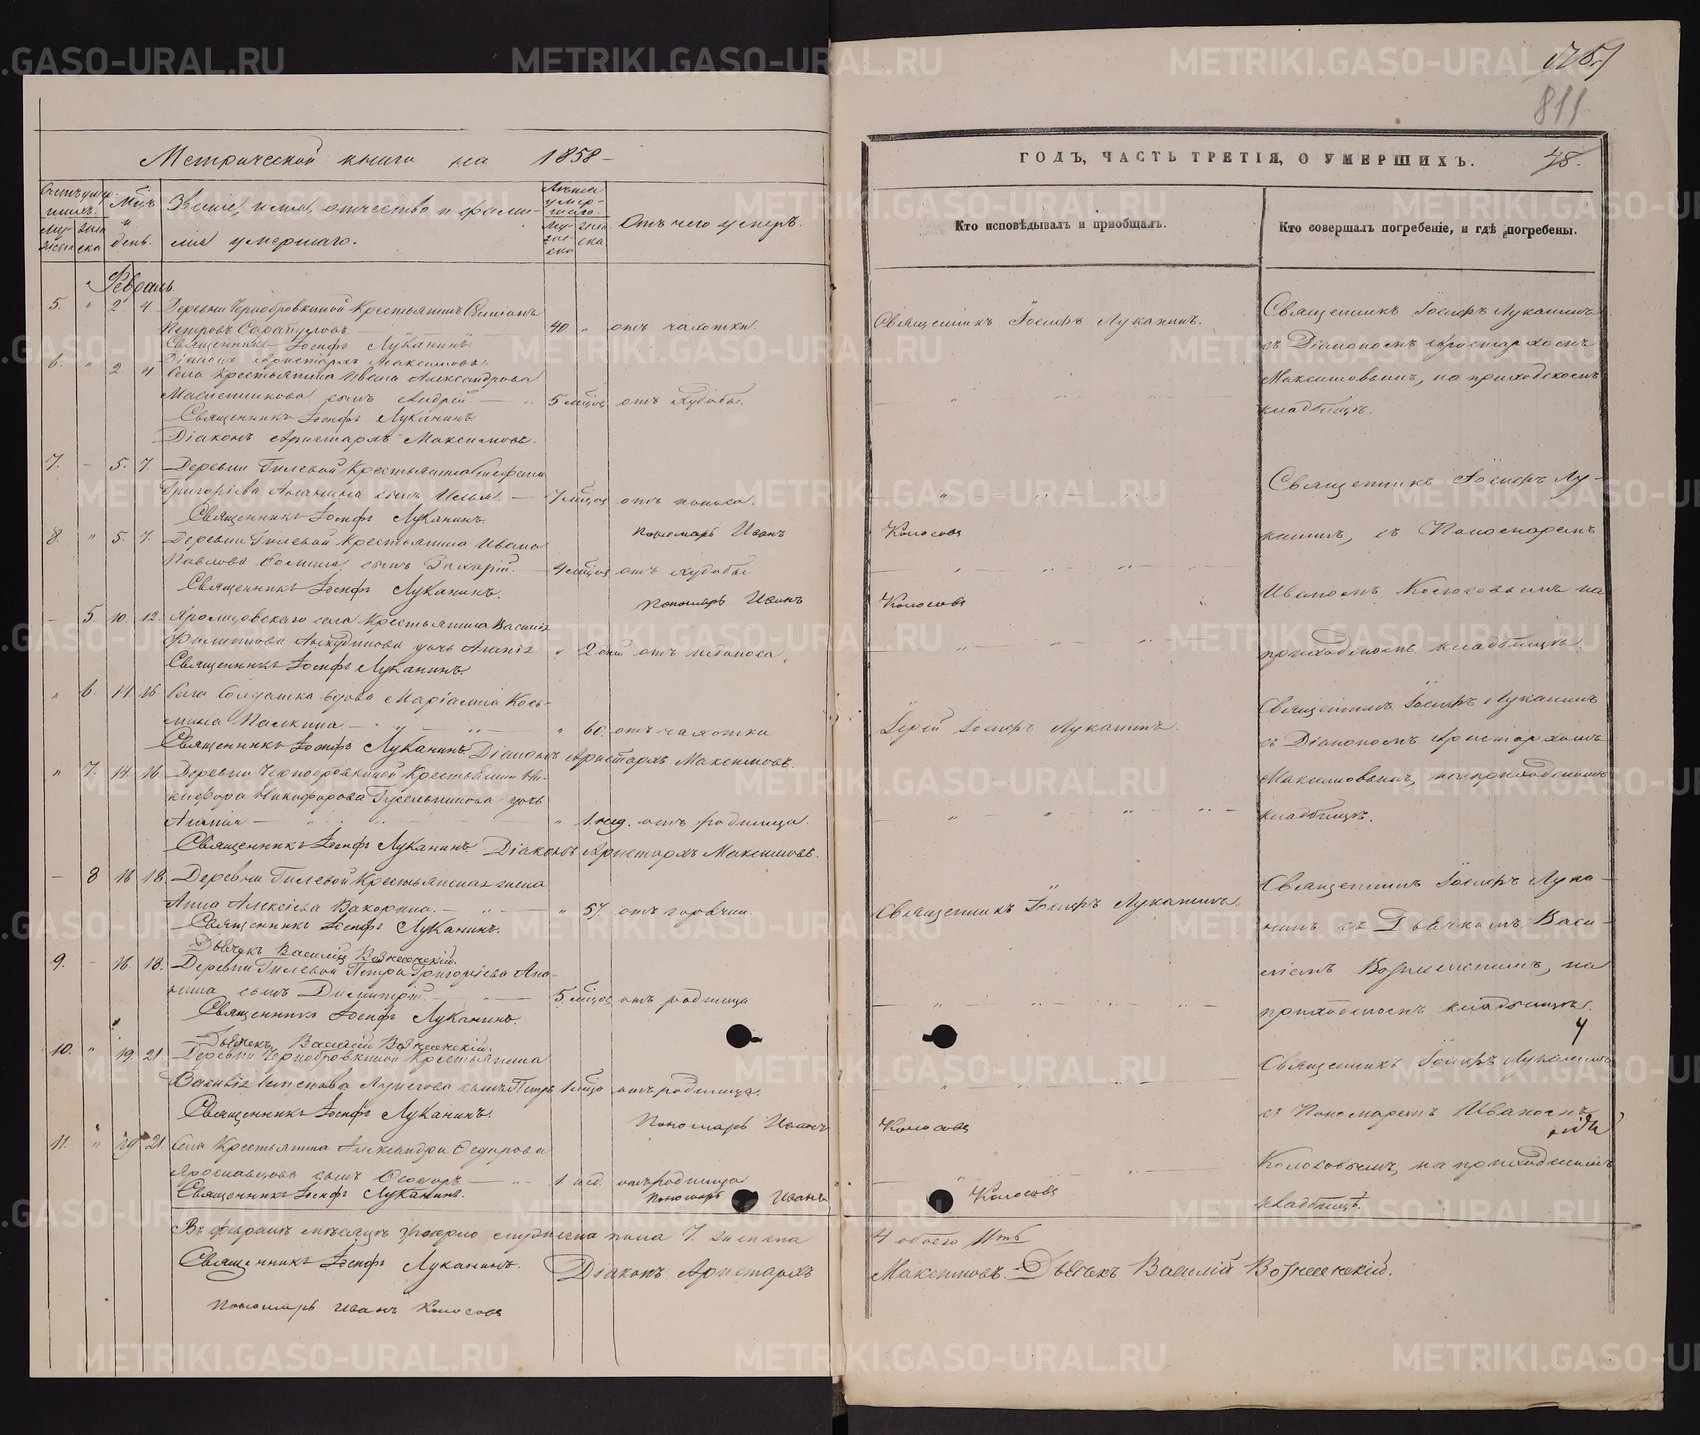 Метрической книги на 1858
Счетъ умер-
шихъ.
Му-
жеска
Жен
ска
Мѣц.
и
день.
Званіе, имя, отчество и фами-
лія умершаго.
Лѣта
умер-
шаго.
Му-
жес-
ка
жен
ска
Отъ чего умеръ.
Февраль
5. " 2. 4 Деревни Чернобровкиной Крестьянинъ
Петровъ 40. " отъ чахотки.
Священникъ Іосифъ Луканинъ
Діаконъ Аристархъ Максимовъ
6. " 2. 4 Села Крестьянина Ивана Александрова
сынъ Андрей 5 мѣцов отъ худобы.
Священникъ Іосифъ Луканинъ
Діаконъ Аристархъ Максимовъ.
7. - 5. 7. Деревни Гилевой Крестьянина Стефана
Григоріева Ананьина сынъ 7 мѣцов отъ поноса.
Священникъ Іосифъ Луканинъ.
Пономарь Иванъ
8. " 5. 7. Деревни Гилевой Крестьянина Ивана
Павлова сынъ Захарій. 9 мѣцов отъ худобы
Священникъ Іосифъ Луканинъ.
Пономарь Иванъ
- 5 10. 12. села Крестьянина Василія
Филиппова дочь Агапія " 2 дней отъ
Священникъ Іосифъ Луканинъ.
" 6. 14 16 Села вдова Маріамна Кось-
мина " 60. отъ чахотки
Священникъ Іосифъ Луканинъ Діаконъ Аристархъ Максимовъ.
" 7. 14 16 Деревни Чернобровкиной Крестьянина Ни-
кифора Никифорова дочь
" 1. нед. отъ родимца.
Священникъ Іосифъ Луканинъ Діаконъ Аристархъ Максимовъ.
- 8 16 18. Деревни Гилевой Крестьянская жена
Анна Алексіева " 57. отъ горячки.
Священникъ Іосифъ Луканинъ.
Дьячекъ Василій Вознесенскій.
9. - 16 18. Деревни Гилевой Петра Григоріева Ана-
ньина сынъ Димитрій 5 мѣцов отъ родимца
Священникъ Іосифъ Луканинъ.
Дьячекъ Василій Вознесенскій.
10. " 19. 21. Деревни Чернобровкиной Крестьянина
сынъ Петръ 1 мѣцъ отъ родимца.
Священникъ Іосифъ Луканинъ.
Пономарь Иванъ
11. " 19 21 Села Крестьянина Александра Федорова
Ярославцова сынъ Ѳеодоръ 1 нед. отъ родимца
Священникъ Іосифъ Луканинъ.
Пономарь Иванъ
Въ февралѣ мѣсяцѣ умерло мужеска пола 7. женска
Священникъ Іосифъ Луканинъ. Діаконъ Аристархъ
Пономарь Иванъ Колосовъ
811
ГОДЪ, ЧАСТЬ ТРЕТІЯ, О УМЕРШИХЪ. 48.
Кто исповѣдывалъ и пріобщалъ.
Кто совершалъ погребеніе, и гдѣ погребены.
Священникъ Іосифъ Луканинъ.
Колосовъ
Колосовъ
Іерей Іосифъ Луканинъ.
Священникъ Іосифъ Луканинъ.
Колосовъ
Колосовъ
4 обоего 11ть
Максимовъ. Дьячекъ Василій Вознесенскій.
Священникъ Іосифъ Луканинъ
съ Діакономъ Аристархомъ
Максимовымъ, на приходскомъ
кладбищѣ.
Священникъ Іосифъ Лу-
канинъ, съ Пономаремъ
Иваномъ Колосовымъ на
приходскомъ кладбищѣ.
Священникъ Іосифъ Луканинъ
съ Діакономъ Аристархомъ
Максимовымъ, на приходскомъ
кладбищѣ.
Священникъ Іосифъ Лука-
нинъ съ Дьячкомъ Васи-
ліемъ Вознесенскимъ, на
приходскомъ кладбищѣ.
Священникъ Іосифъ Луканинъ
съ Пономаремъ Иваномъ
Колосовымъ, на приходскомъ
кладбищѣ.
METRIKI.GASO-URAL.RU